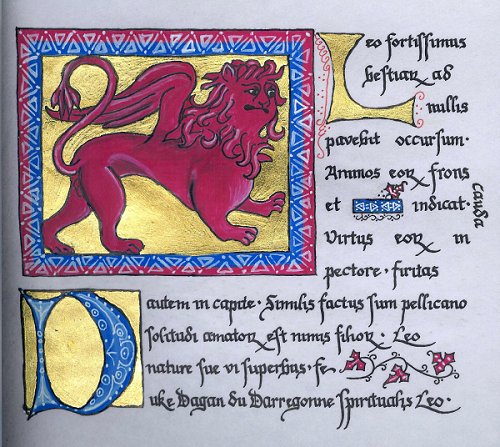 Leo fortissimus
bestiarꝝ ad
nullis
pavebit occursum·
Animos eorꝝ frons
et indicat·
cauda
Virtus eorꝝ in
pectore· firitas
D autem in capite· Similis factus sum pellicano
solitudi amatorꝝ est nimis filiorꝝ· Leo
nature sue vi superbus· fe
uke Dagan du Darregonne Spiritualis Leo·